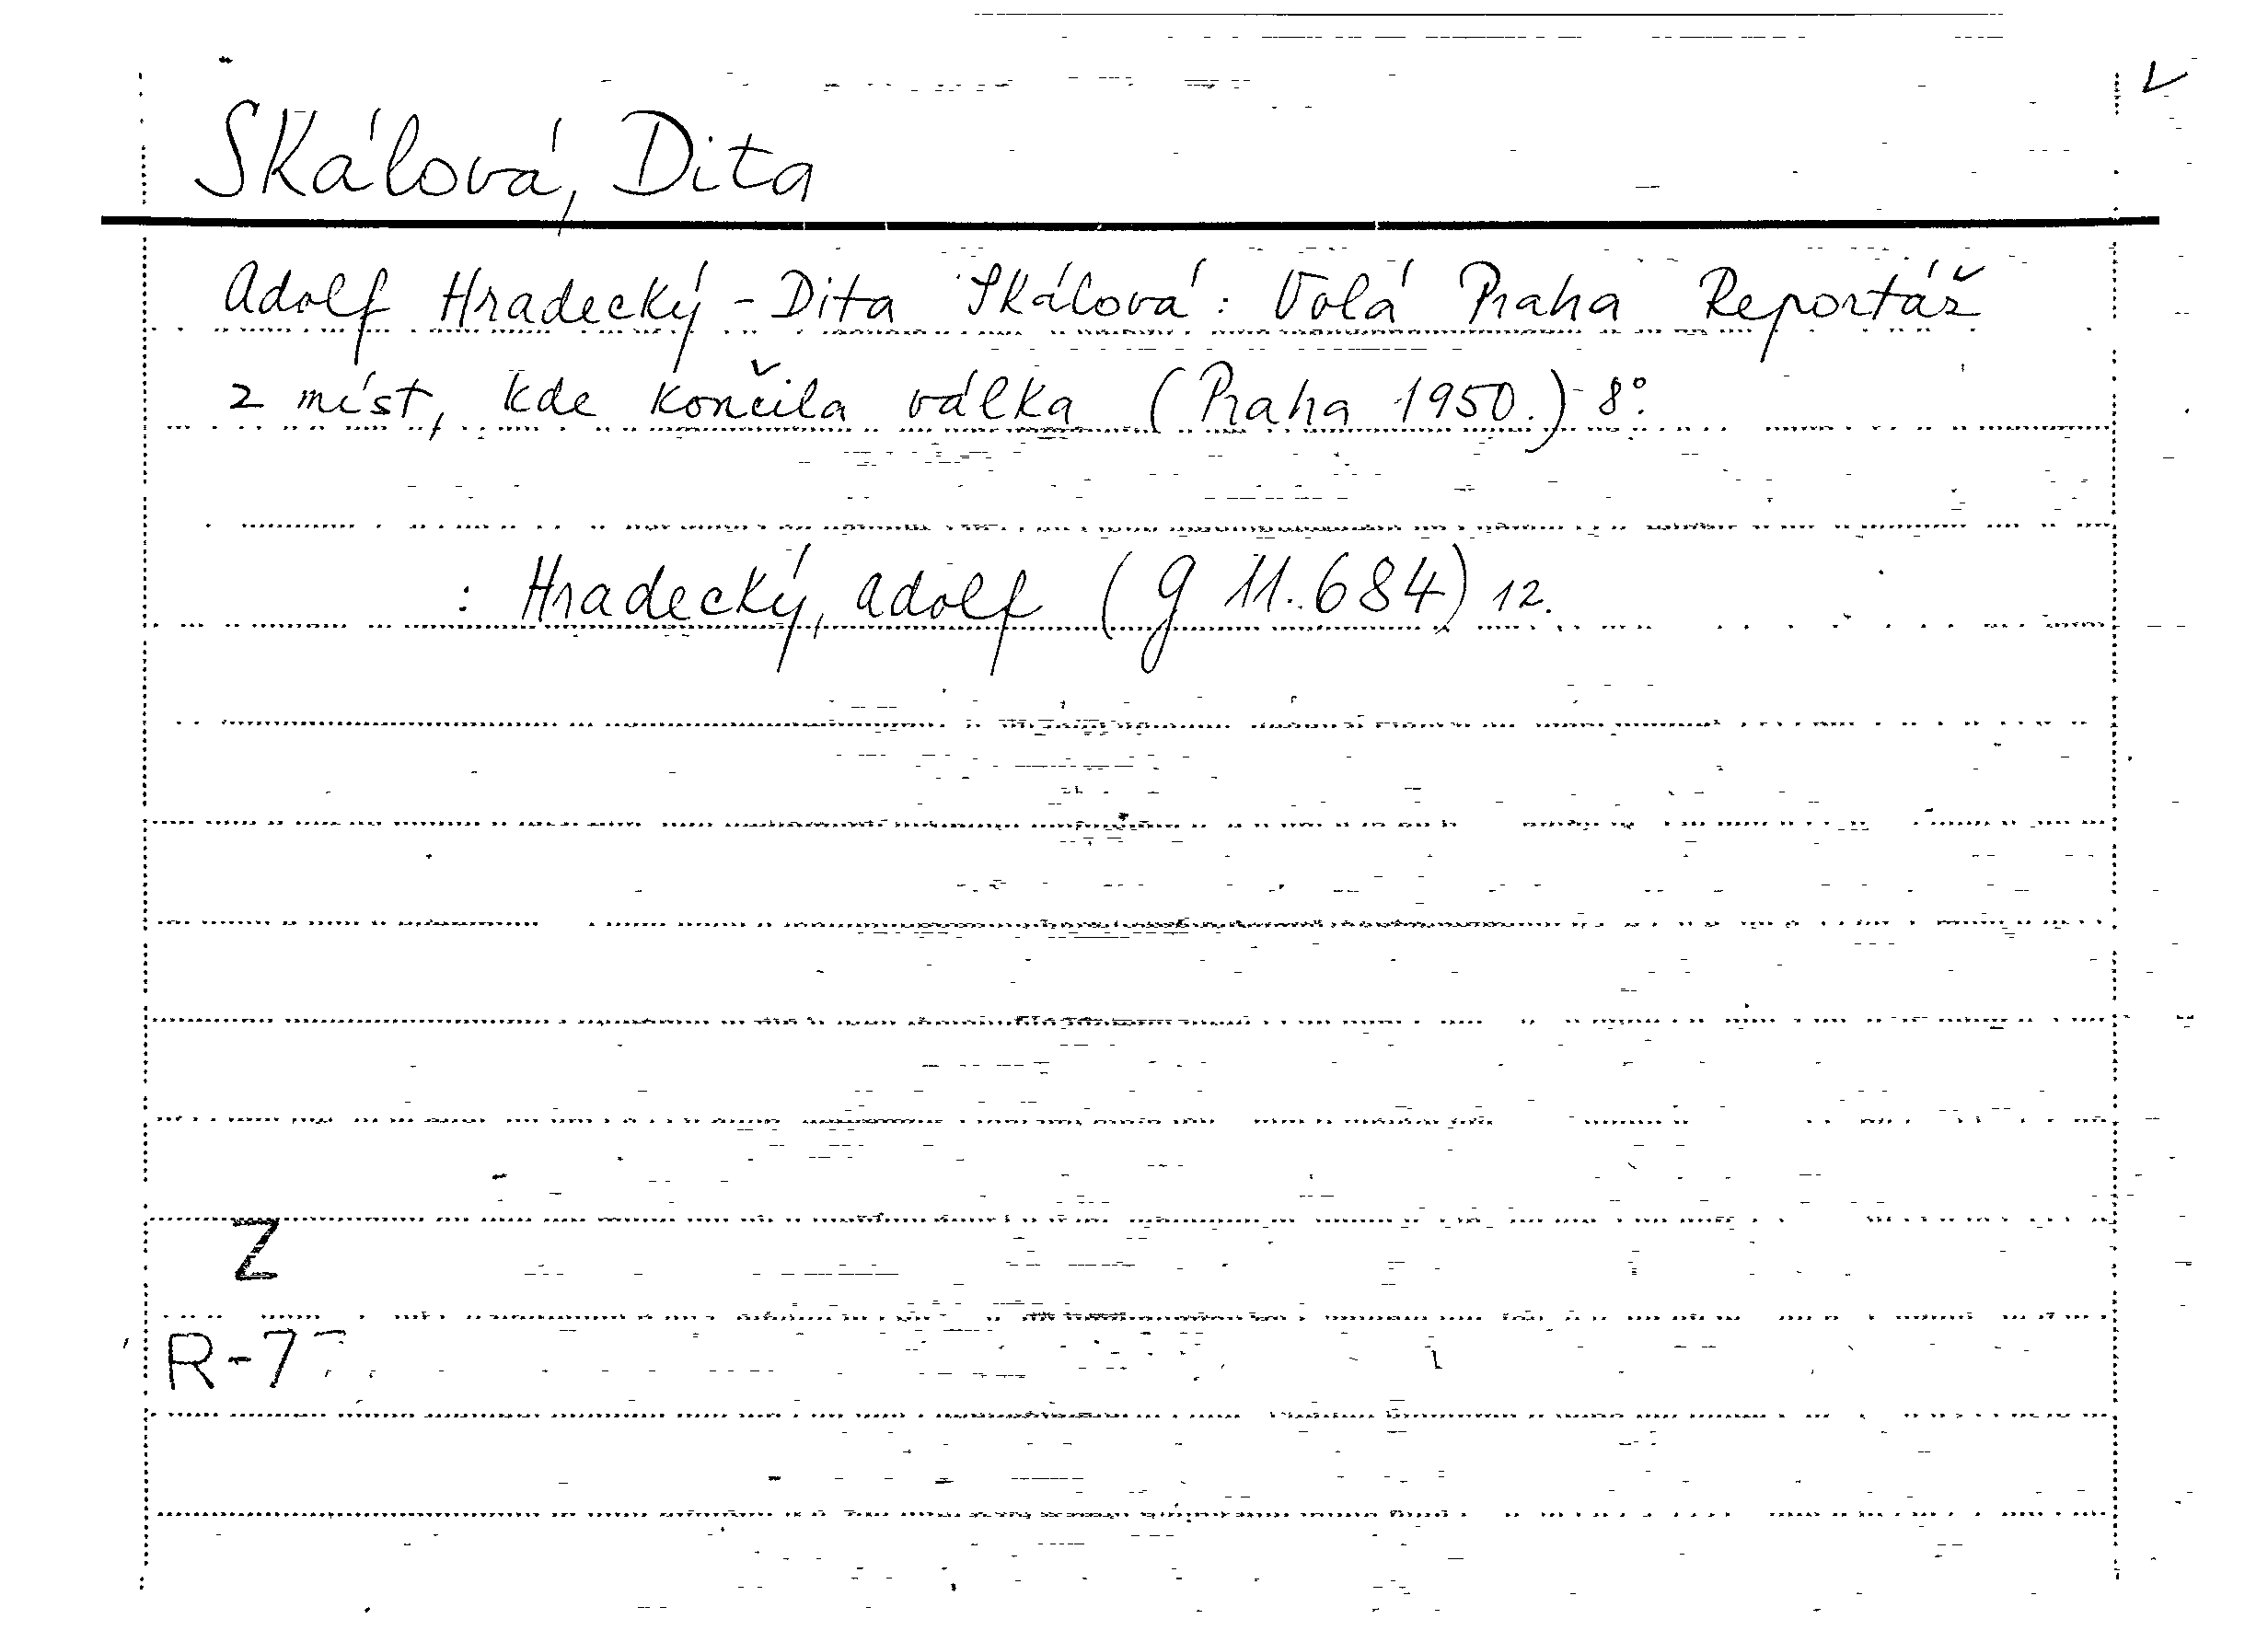 Skálová, Dita
Adolf Hradecký - Dita Skálová: Volá Praha Reportáž
z míst, kde končila válka (Praha 1950.) 8°.
: Hradecký, Adolf (g 11.684) 12.
Z